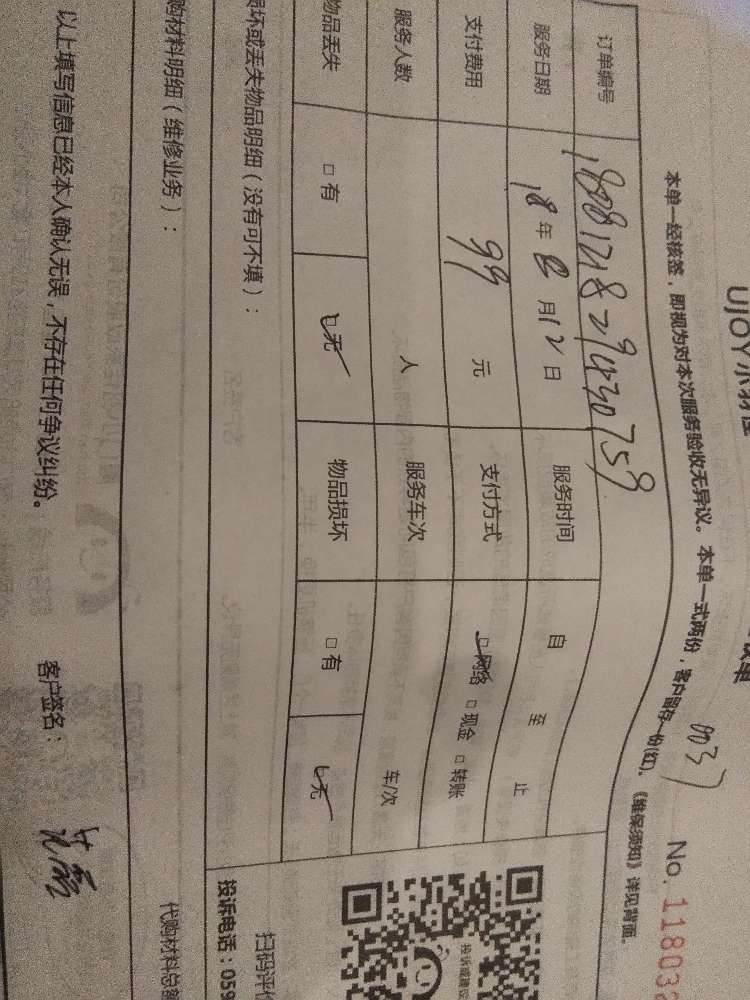 UJOY
本单一经核签，即视为对本次服务验收无异议。本单一式两份，客户留存一份(红)。《维保须知》详见背面。
003
No. 11803
订单编号 1808121829430759
服务日期 18年8月12日 服务时间 自 至 止
支付费用 99 元 支付方式 □网络 □现金 □转账
服务人数 人 服务车次 车/次
物品丢失 □有 □无 物品损坏 □有 □无
损坏或丢失物品明细（没有可不填）：
购材料明细（维修业务）：
以上填写信息已经本人确认无误，不存在任何争议纠纷。 客户签名：
投诉或建议
扫码评价
投诉电话：059
代购材料总额